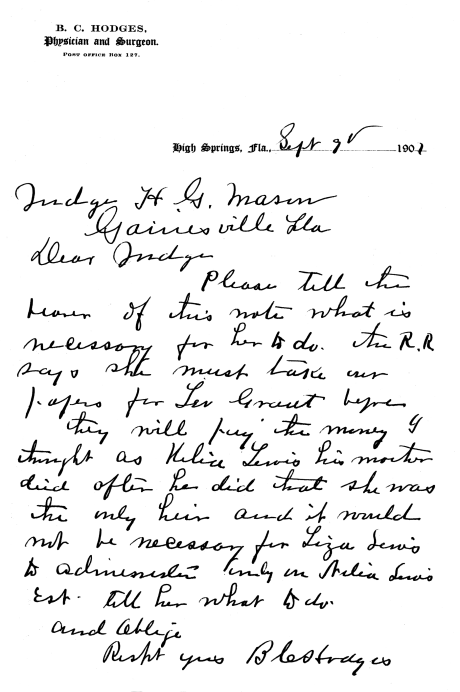 B. C. HODGES,
Physician and Surgeon.
POST OFFICE BOX 127.
High Springs, Fla., Sept 9 190
Judge H G. Mason
Gainesville Fla
Dear Judge
Please tell the
bearer of this note what is
necessary for her to do. the R.R
says she must take out
papers for Lev Grant before
they will pay the money I
thought as Helia Lewis his mother
died after he did that she was
the only heir and it would
not be necessary for Liza Lewis
to administer only on Helia Lewis
Est. tell her what to do.
and Oblige
Respt yours B C Hodges